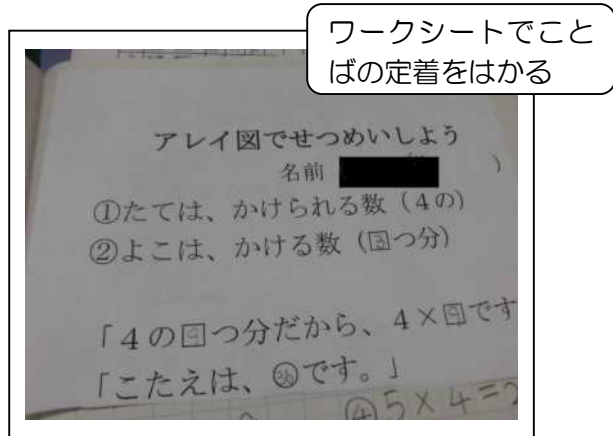 ワークシートでこと
ばの定着をはかる
アレイ図でせつめいしよう
名前 )
①たては、かけられる数（4の）
②よこは、かける数（ つ分）
「4の つ分だから、4× です
「こたえは、 です。」
④5×4=2